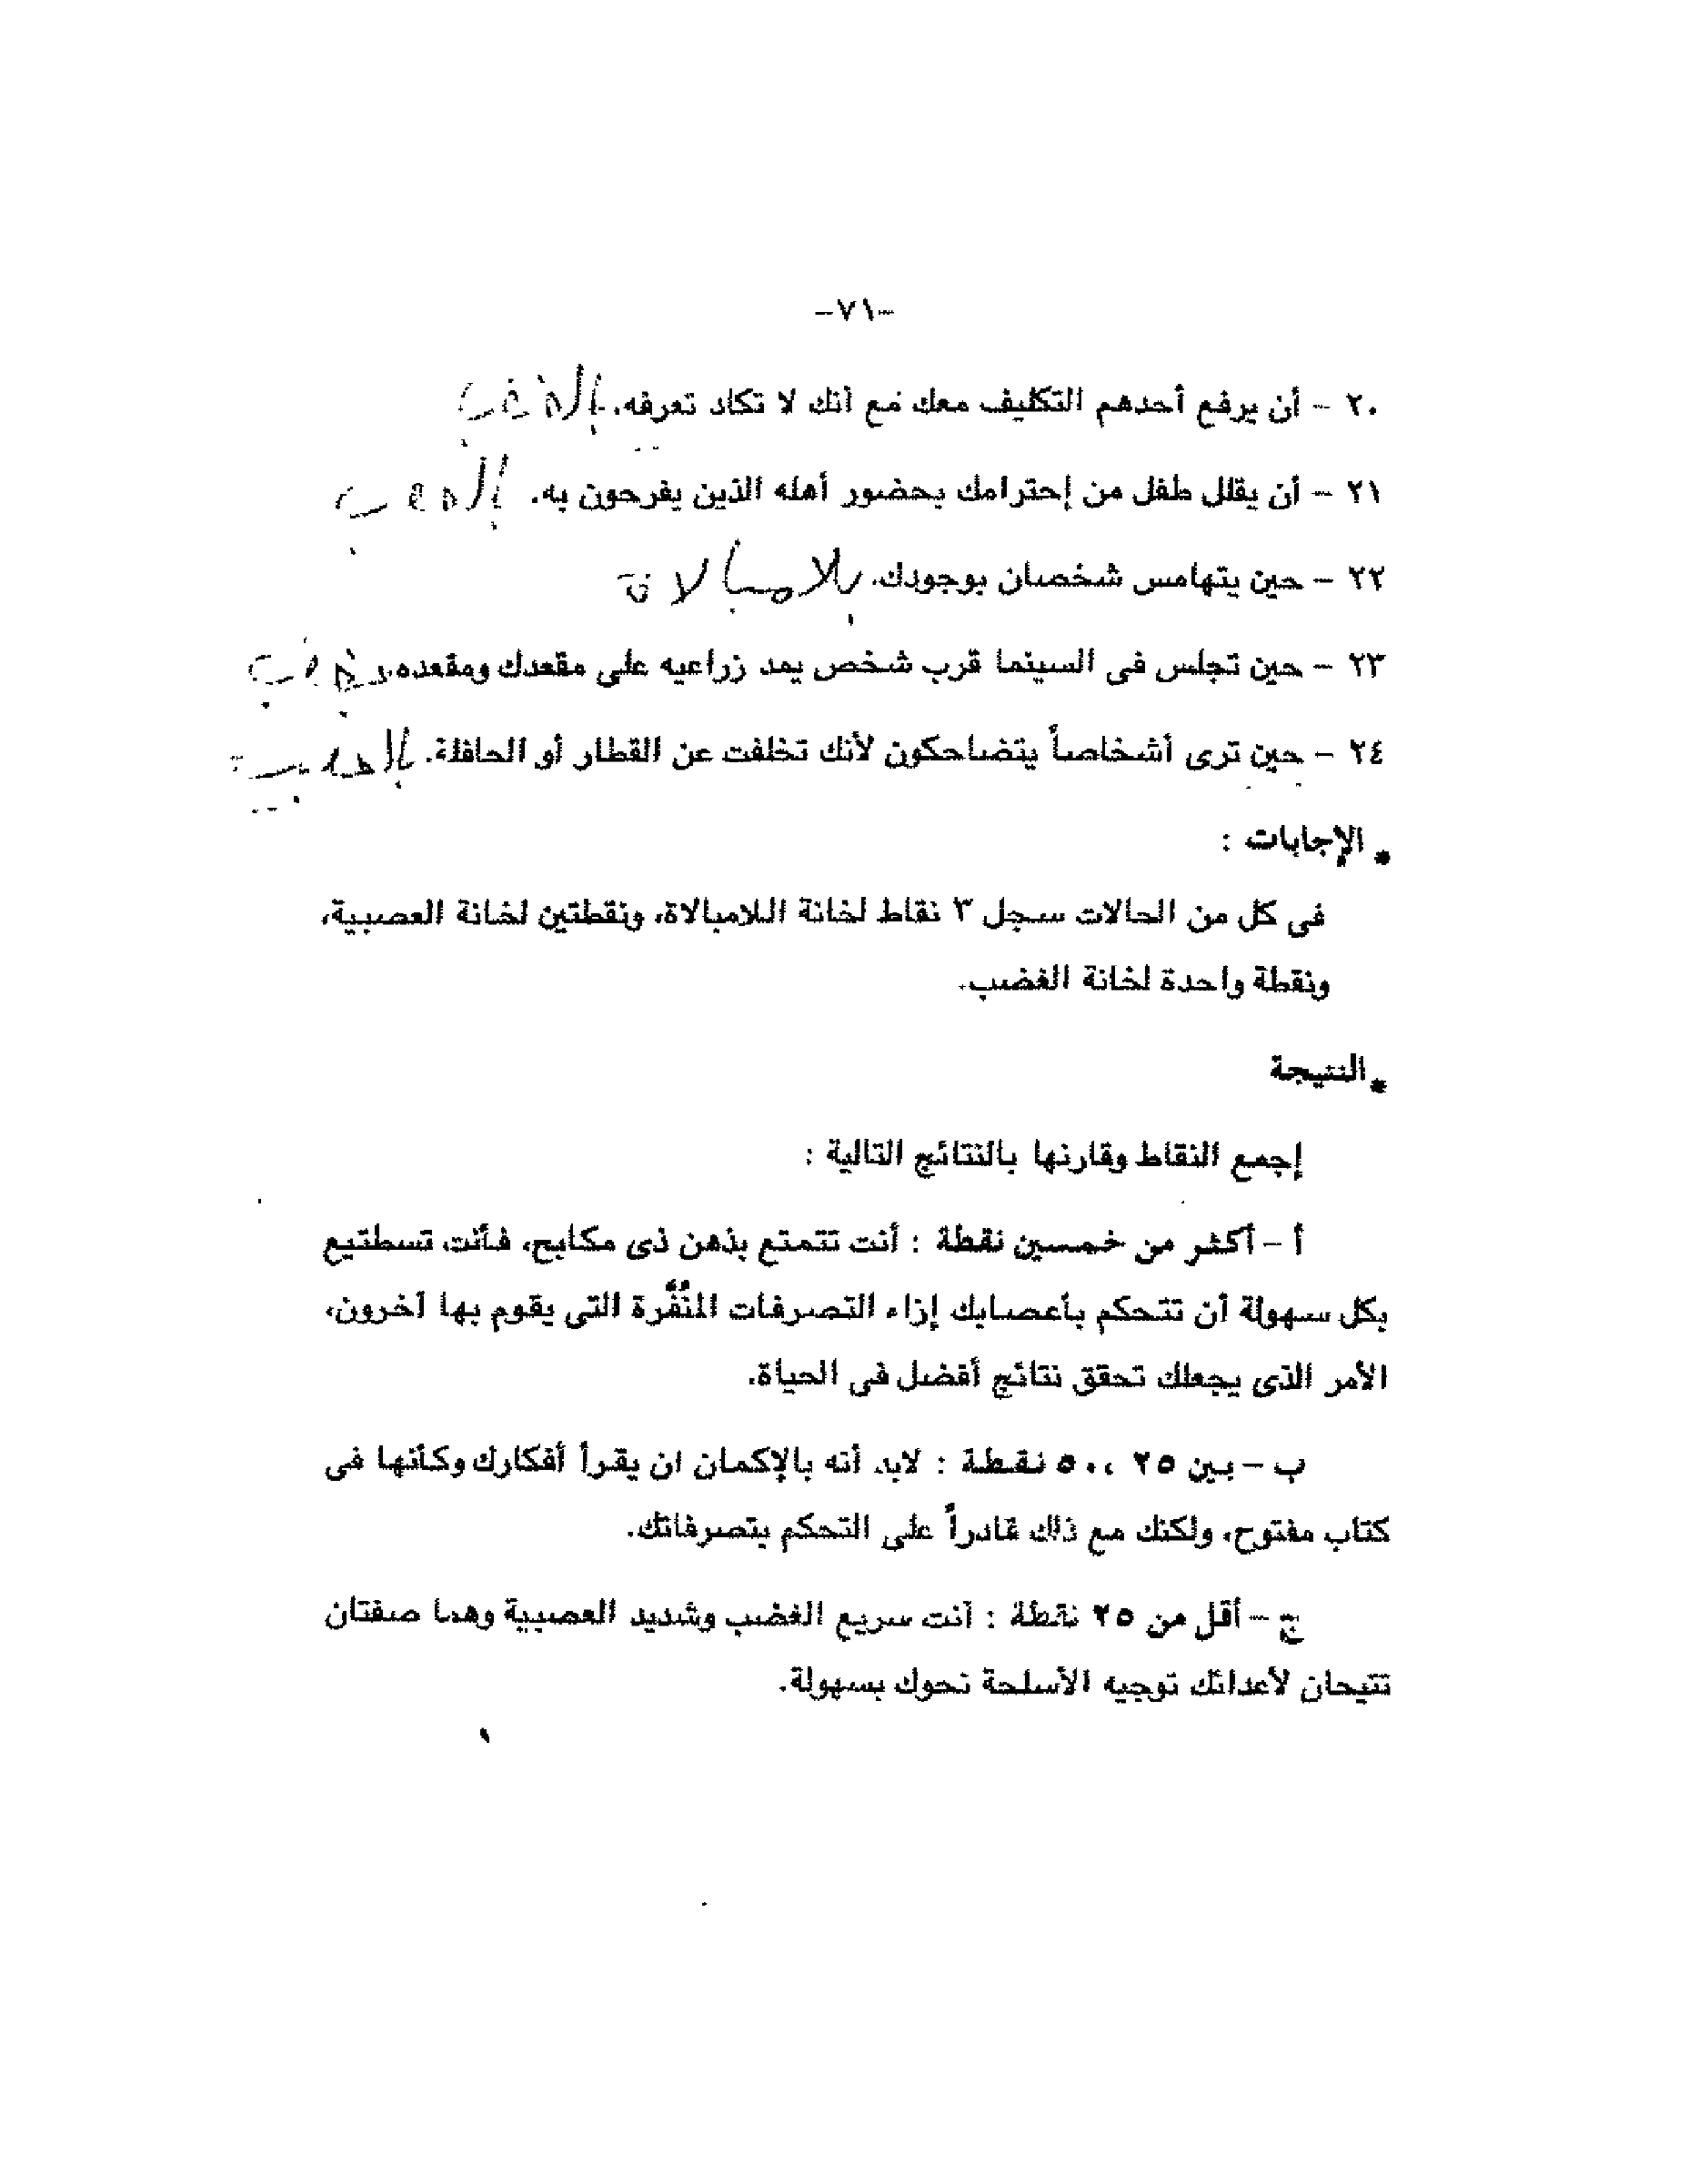 -٧١-
٢٠ - أن يرفع أحدهم التكليف معك مع أنك لا تكاد تعرفه.
٢١ - أن يقلل طفل من إحترامك بحضور أهله الذين يفرحون به.
٢٢ - حين يتهامس شخصان بوجودك. بلامبالاة
٢٣ - حين تجلس فى السينما قرب شخص يمد زراعيه على مقعدك ومقعده.
٢٤ - حين ترى أشخاصاً يتضاحكون لأنك تخلفت عن القطار أو الحافلة.
* الإجابات :
فى كل من الحالات سجل ٣ نقاط لخانة اللامبالاة، ونقطتين لخانة العصبية،
ونقطة واحدة لخانة الغضب.
* النتيجة
إجمع النقاط وقارنها بالنتائج التالية :
أ - أكثر من خمسين نقطة : أنت تتمتع بذهن ذى مكابح، فأنت تسطتيع
بكل سهولة أن تتحكم بأعصابك إزاء التصرفات المنُفَّرة التى يقوم بها آخرون،
الأمر الذى يجعلك تحقق نتائج أفضل فى الحياة.
ب - بين ٢٥ ،٥٠ نقطة : لابد أنه بالإكمان ان يقرأ أفكارك وكأنها فى
كتاب مفتوح، ولكنك مع ذلك قادراً على التحكم بتصرفاتك.
ج - أقل من ٢٥ نقطة : أنت سريع الغضب وشديد العصبية وهما صفتان
تتيحان لأعدائك توجيه الأسلحة نحوك بسهولة.